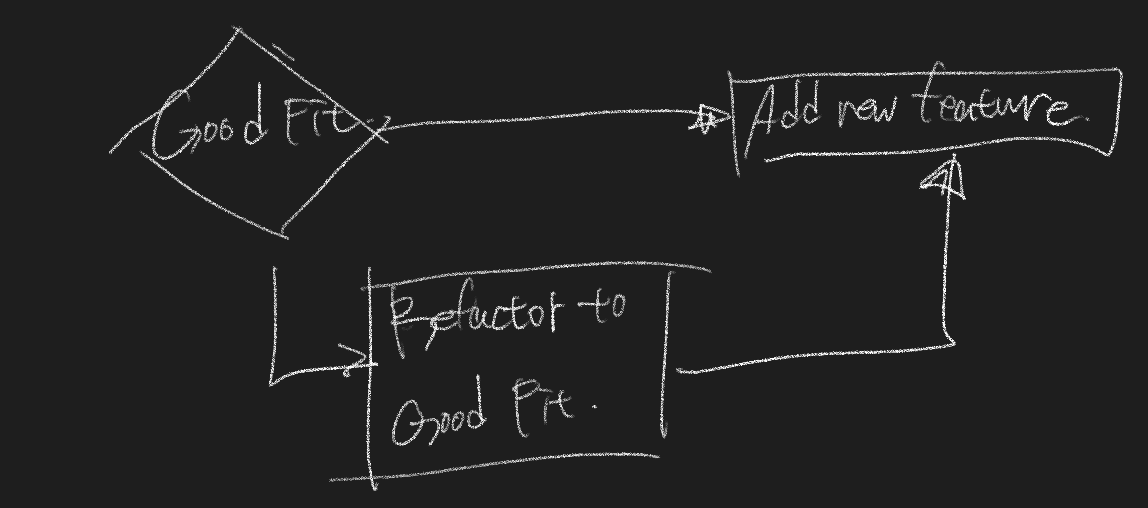 Good Fit
Add new feature.
Refactor to
Good Fit.